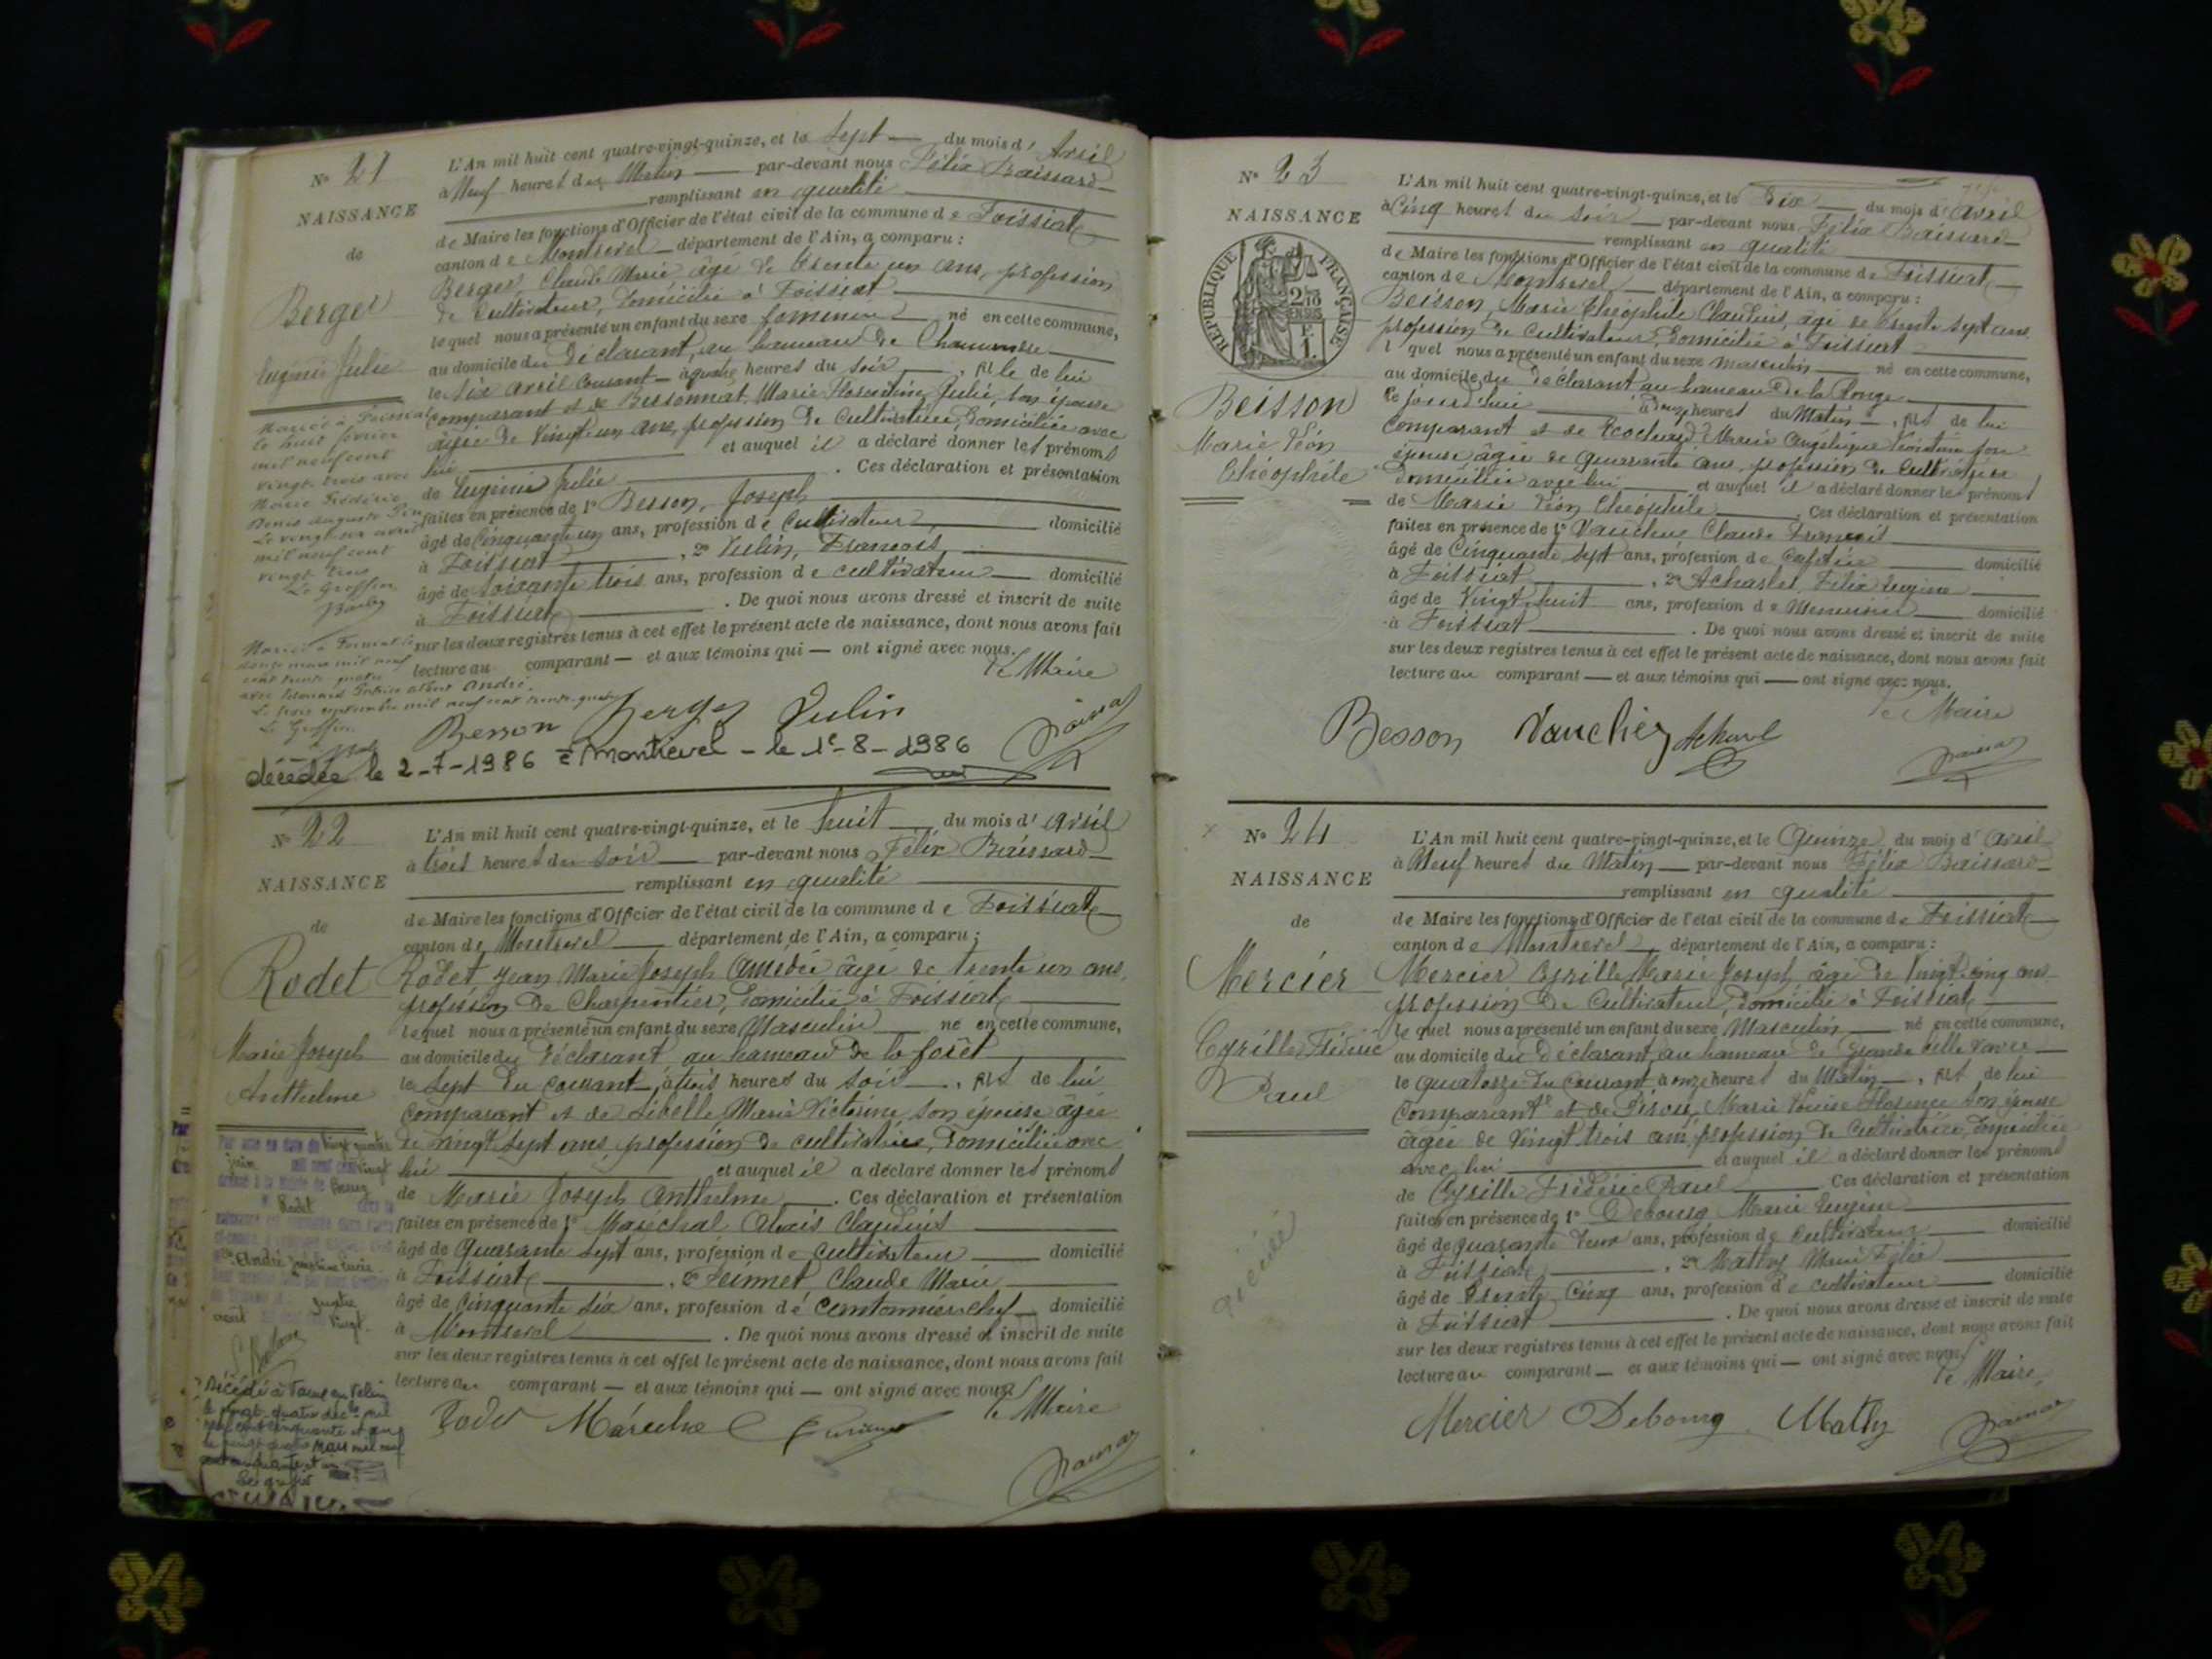 N° 21
NAISSANCE
de
Berger
Eugénie Julie
Mariée à Foissiat
le huit février
mil neuf cent
vingt trois avec
Marie Frédéric
Denis Auguste
Le vingt six avril
mil neuf cent
vingt trois
Le Greffier
Mariée à
douze mars mil neuf
cent trente quatre
avec Edouard albert André.
Le trois septembre mil neuf cent trente-quatre
Le Greffier
L'An mil huit cent quatre-vingt-quinze, et le Sept du mois d' Avril
à Neuf heures du Matin par-devant nous Félix Baissard
remplissant en qualité
de Maire les fonctions d'Officier de l'état civil de la commune de Foissiat
canton de Montrevel département de l'Ain, a comparu :
Berger, Claude Marie âgé de trente un ans, profession
de Cultivateur, domicilié à Foissiat
lequel nous a présenté un enfant du sexe féminin né en cette commune,
au domicile du Déclarant, au hameau de
le six avril Courant à quatre heures du Soir, fille de lui
comparant et de Bessonnat Marie Florentine Julie, son épouse
âgée de Vingt un ans, profession de Cultivatrice, domiciliée avec
lui et auquel il a déclaré donner les prénoms
de Eugénie Julie. Ces déclaration et présentation
faites en présence de 1° Besson, Joseph
âgé de Cinquante un ans, profession de Cultivateur domicilié
à Foissiat, 2° Vulin, François,
âgé de Soixante trois ans, profession de cultivateur domicilié
à Foissiat. De quoi nous avons dressé et inscrit de suite
sur les deux registres tenus à cet effet le présent acte de naissance, dont nous avons fait
lecture au comparant — et aux témoins qui — ont signé avec nous.
Le Maire
Besson Berger Vulin Baissard
décédée le 2-7-1986 à Montrevel - le 1er-8-1986
N° 22
NAISSANCE
de
Rodet
Marie Joseph
Anthelme
vingt quatre
juin
Rodet
André Joséphine Lucie
quatre
août vingt
Décédé à Vaulx en Velin
le vingt-quatre déc. mil
neuf cent cinquante et un
mars mil neuf
Le greffier
L'An mil huit cent quatre-vingt-quinze, et le huit du mois d' Avril
à trois heures du Soir par-devant nous Félix Baissard
remplissant en qualité
de Maire les fonctions d'Officier de l'état civil de la commune de Foissiat
canton de Montrevel département de l'Ain, a comparu :
Rodet Jean Marie Joseph Amédée âgé de trente un ans,
profession de Charpentier, domicilié à Foissiat
lequel nous a présenté un enfant du sexe Masculin né en cette commune,
au domicile du Déclarant au hameau de la forêt
le Sept du Courant, à trois heures du Soir, fils de lui
Comparant et de Sibelle Marie Victorine, son épouse âgée
de vingt Sept ans, profession de cultivatrice, domiciliée avec
lui et auquel il a déclaré donner les prénoms
de Marie Joseph Anthelme. Ces déclaration et présentation
faites en présence de 1° Maréchal Claudius
âgé de Quarante Sept ans, profession de Cultivateur domicilié
à Foissiat, 2° Claude Marie
âgé de Cinquante six ans, profession de Cantonnier chef domicilié
à Montrevel. De quoi nous avons dressé et inscrit de suite
sur les deux registres tenus à cet effet le présent acte de naissance, dont nous avons fait
lecture au comparant — et aux témoins qui — ont signé avec nous.
Le Maire
Rodet Maréchal Baissard
N° 23
NAISSANCE
RÉPUBLIQUE FRANÇAISE
2/10 EN SUS
Beisson
Marie Léon
Théophile
L'An mil huit cent quatre-vingt-quinze, et le Dix du mois d' Avril
à Cinq heures du Soir par-devant nous Félix Baissard
remplissant en qualité
de Maire les fonctions d'Officier de l'état civil de la commune de Foissiat
canton de Montrevel département de l'Ain, a comparu :
Beisson, Marie Théophile Claudius, âgé de trente Sept ans
profession de Cultivateur, domicilié à Foissiat
lequel nous a présenté un enfant du sexe masculin né en cette commune,
au domicile du Déclarant au hameau de la Ronge
Ce jourd'hui à Deux heures du Matin, fils de lui
Comparant et de Ecochard Marie Angélique Victorine son
épouse âgée de quarante ans, profession de Cultivatrice
Domiciliée avec lui et auquel il a déclaré donner les prénoms
de Marie Léon Théophile. Ces déclaration et présentation
faites en présence de 1° Vaucher Claude François
âgé de Cinquante Sept ans, profession de Cafetier domicilié
à Foissiat, 2° Acharlet Félix Eugène
âgé de Vingt huit ans, profession de Menuisier domicilié
à Foissiat. De quoi nous avons dressé et inscrit de suite
sur les deux registres tenus à cet effet le présent acte de naissance, dont nous avons fait
lecture au comparant — et aux témoins qui — ont signé avec nous.
Le Maire
Besson Vaucher Baissard
N° 24
NAISSANCE
de
Mercier
Cyrille Frédéric
Paul
L'An mil huit cent quatre-vingt-quinze, et le Quinze du mois d' Avril
à Neuf heures du Matin par-devant nous Félix Baissard
remplissant en qualité
de Maire les fonctions d'Officier de l'état civil de la commune de Foissiat
canton de Montrevel département de l'Ain, a comparu :
Mercier Cyrille Marie Joseph âgé de Vingt cinq ans
profession de Cultivateur, domicilié à Foissiat
lequel nous a présenté un enfant du sexe Masculin né en cette commune,
au domicile du Déclarant, au hameau de Grande
le quatorze du Courant à onze heures du Matin, fils de lui
Comparant et de Marie Louise Florence son épouse
âgée de Vingt trois ans, profession de Cultivatrice, domiciliée
avec lui et auquel il a déclaré donner les prénoms
de Cyrille Frédéric Paul Ces déclaration et présentation
faites en présence de 1° Debourg Marie Eugène
âgé de quarante deux ans, profession de Cultivateur domicilié
à Foissiat, 2° Mathy Marie Félix
âgé de trente Cinq ans, profession de cultivateur domicilié
à Foissiat. De quoi nous avons dressé et inscrit de suite
sur les deux registres tenus à cet effet le présent acte de naissance, dont nous avons fait
lecture au comparant — et aux témoins qui — ont signé avec nous.
Le Maire,
Mercier Debourg Mathy Baissard